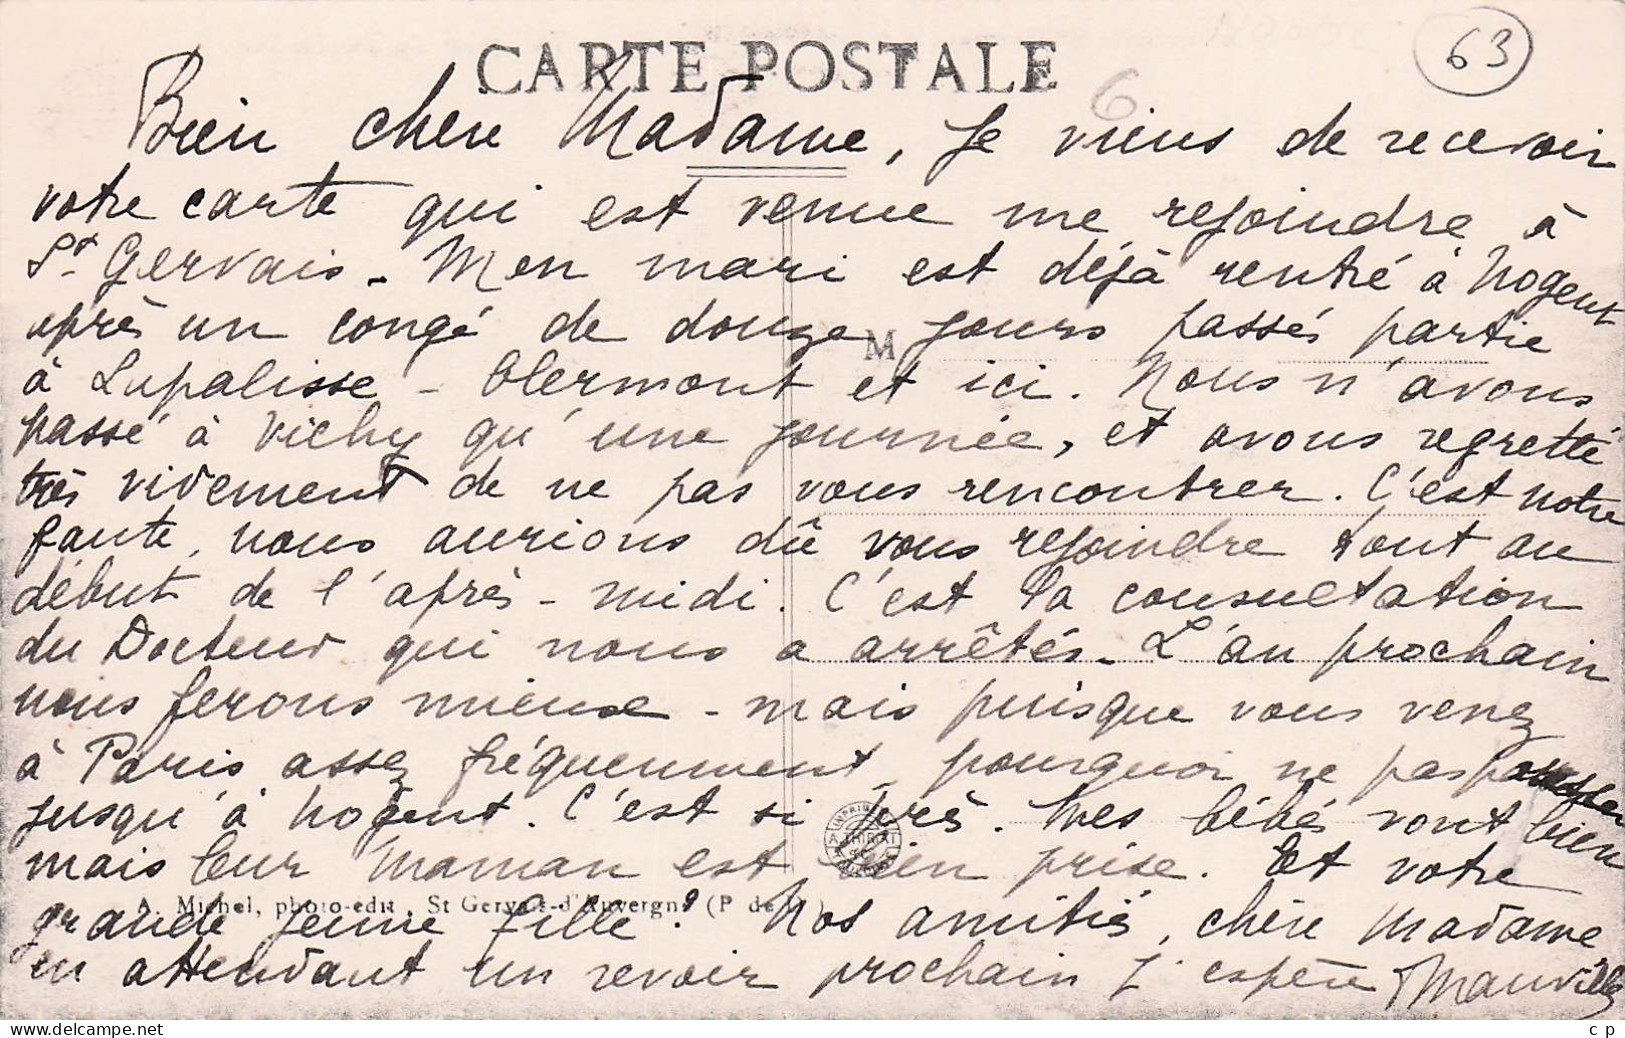 63
CARTE POSTALE
6
Bien chère Madame, Je viens de recevoir
votre carte qui est venue me rejoindre à
St Gervais - Mon mari est déjà rentré à Nogent
après un congé de douze jours passés partie
M
à Lapalisse - Clermont et ici. Nous n'avons
passé à Vichy qu'une journée, et avons regretté
très vivement de ne pas vous rencontrer. C'est notre
faute, nous aurions dû vous rejoindre tout au
début de l'après-midi. C'est la consultation
du Docteur qui nous a arrêtés. L'an prochain
nous ferons mieux - mais puisque vous venez
à Paris assez fréquemment, pourquoi ne pas passer
jusqu'à Nogent. C'est si près. Mes bébés vont bien
mais leur maman est bien prise. Et votre
A. Michel, photo-edit., St Gervais-d'Auvergne (P. de D.)
grande jeune fille? Nos amitiés, chère Madame
en attendant un revoir prochain j'espère